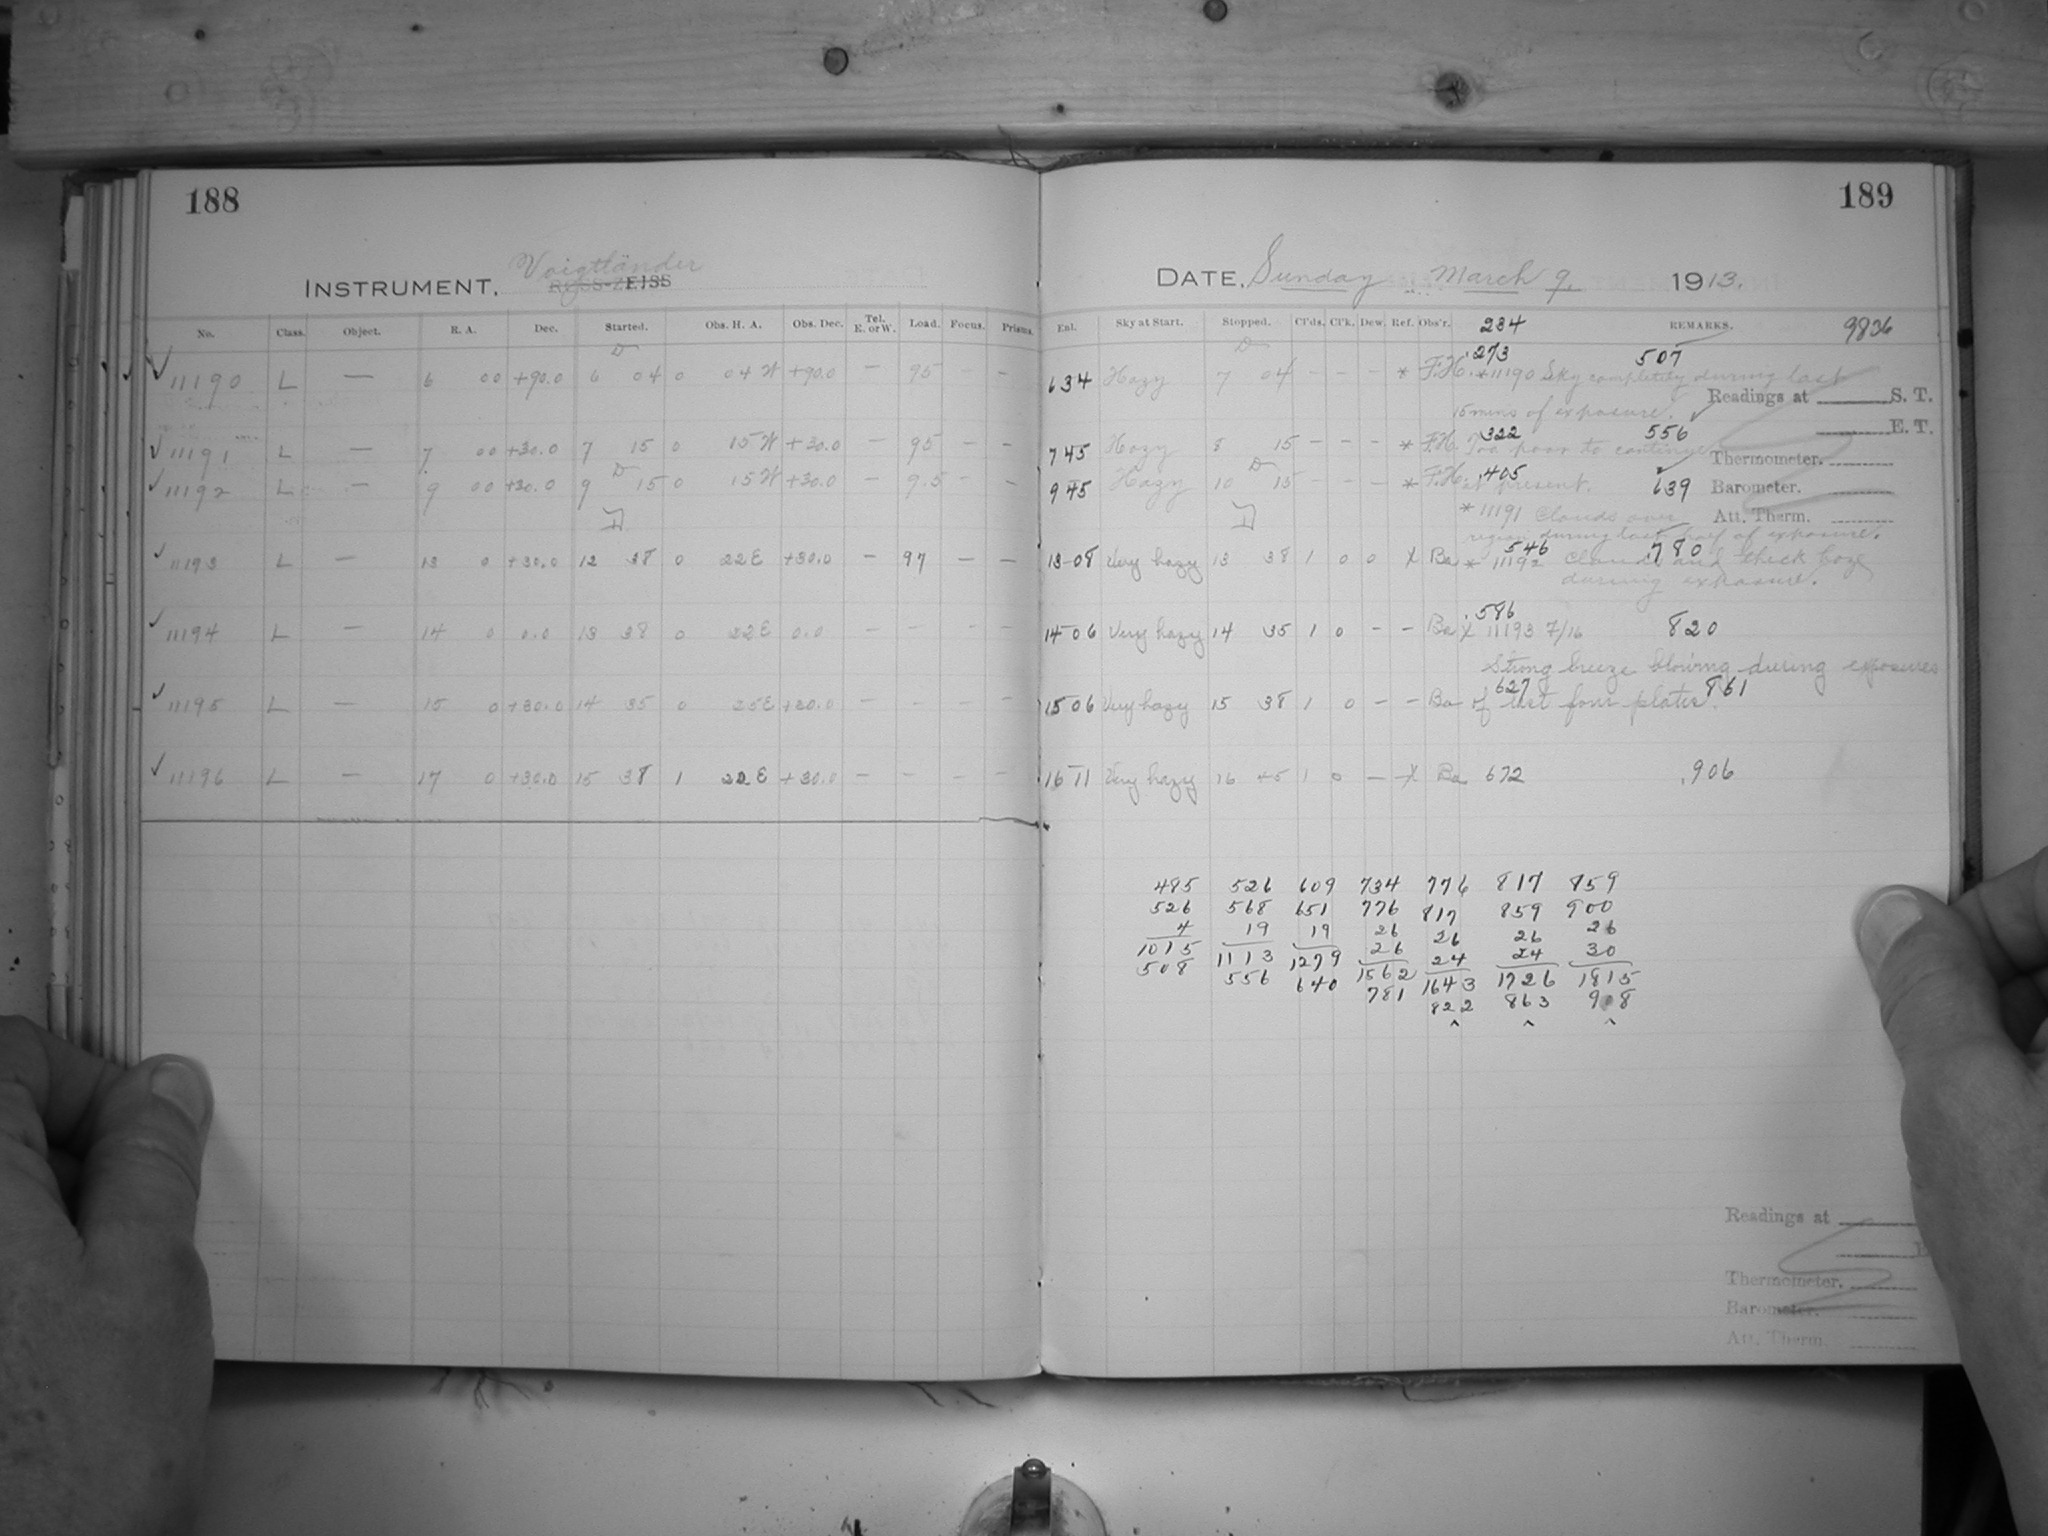 188
189
INSTRUMENT. Voigtländer
ROSS-ZEISS
DATE. Sunday March 9, 1913.
No. Class. Object. R. A. Dec. Started. Obs. H. A. Obs. Dec. Tel. E. or W. Load. Focus. Prisms. Exl. Sky at Start. Stopped. Cl'ds. Cl'k. Dew. Ref. Obs'r. 234 REMARKS. 9836
D D .273 507
✓ 11190 L — 6 00 +90.0 6 04 0 04 W +90.0 — 95 — 6 34 Hazy 7 04 — — — * F.H. *11190 Sky completely during last
Readings at S. T.
15 mins of exposure.
E. T.
322 556
✓ 11191 L — 7 00 +30.0 7 15 0 15 W +30.0 — 95 — — 7 45 Hazy 8 15 — — — * F.H. Too poor to continue
Thermometer.
D D .405 639
✓ 11192 L — 9 00 +30.0 9 15 0 15 W +30.0 — 9.5 — — 9 45 Hazy 10 15 — — — * F.H. at present.
Barometer.
*11191 Clouds over
Att. Therm.
region during last half of exposure.
546 .780
✓ 11193 L — 13 0 +30.0 12 38 0 22 E +30.0 — 97 — — 13 08 Very hazy 13 38 1 0 0 X Ba * 11192 Clouds and thick haze
during exposure.
.586
✓ 11194 L — 14 0 0.0 13 38 0 22 E 0.0 — — — — 14 06 Very hazy 14 35 1 0 — — Ba X 11193 7/16 820
Strong breeze blowing during exposures
627 861
✓ 11195 L — 15 0 +30.0 14 35 0 25 E +30.0 — — — — 15 06 Very hazy 15 38 1 0 — — Ba of last four plates.
✓ 11196 L — 17 0 +30.0 15 38 1 22 E +30.0 — — — — 16 11 Very hazy 16 45 1 0 — X Ba 672 .906
485 526 609 734 776 817 859
526 568 651 776 817 859 900
4 19 19 26 26 26 26
26 24 24 30
1015 1113 1279 1562 1643 1726 1815
508 556 640 781 822 863 908
Readings at
Thermometer.
Barometer.
Att. Therm.